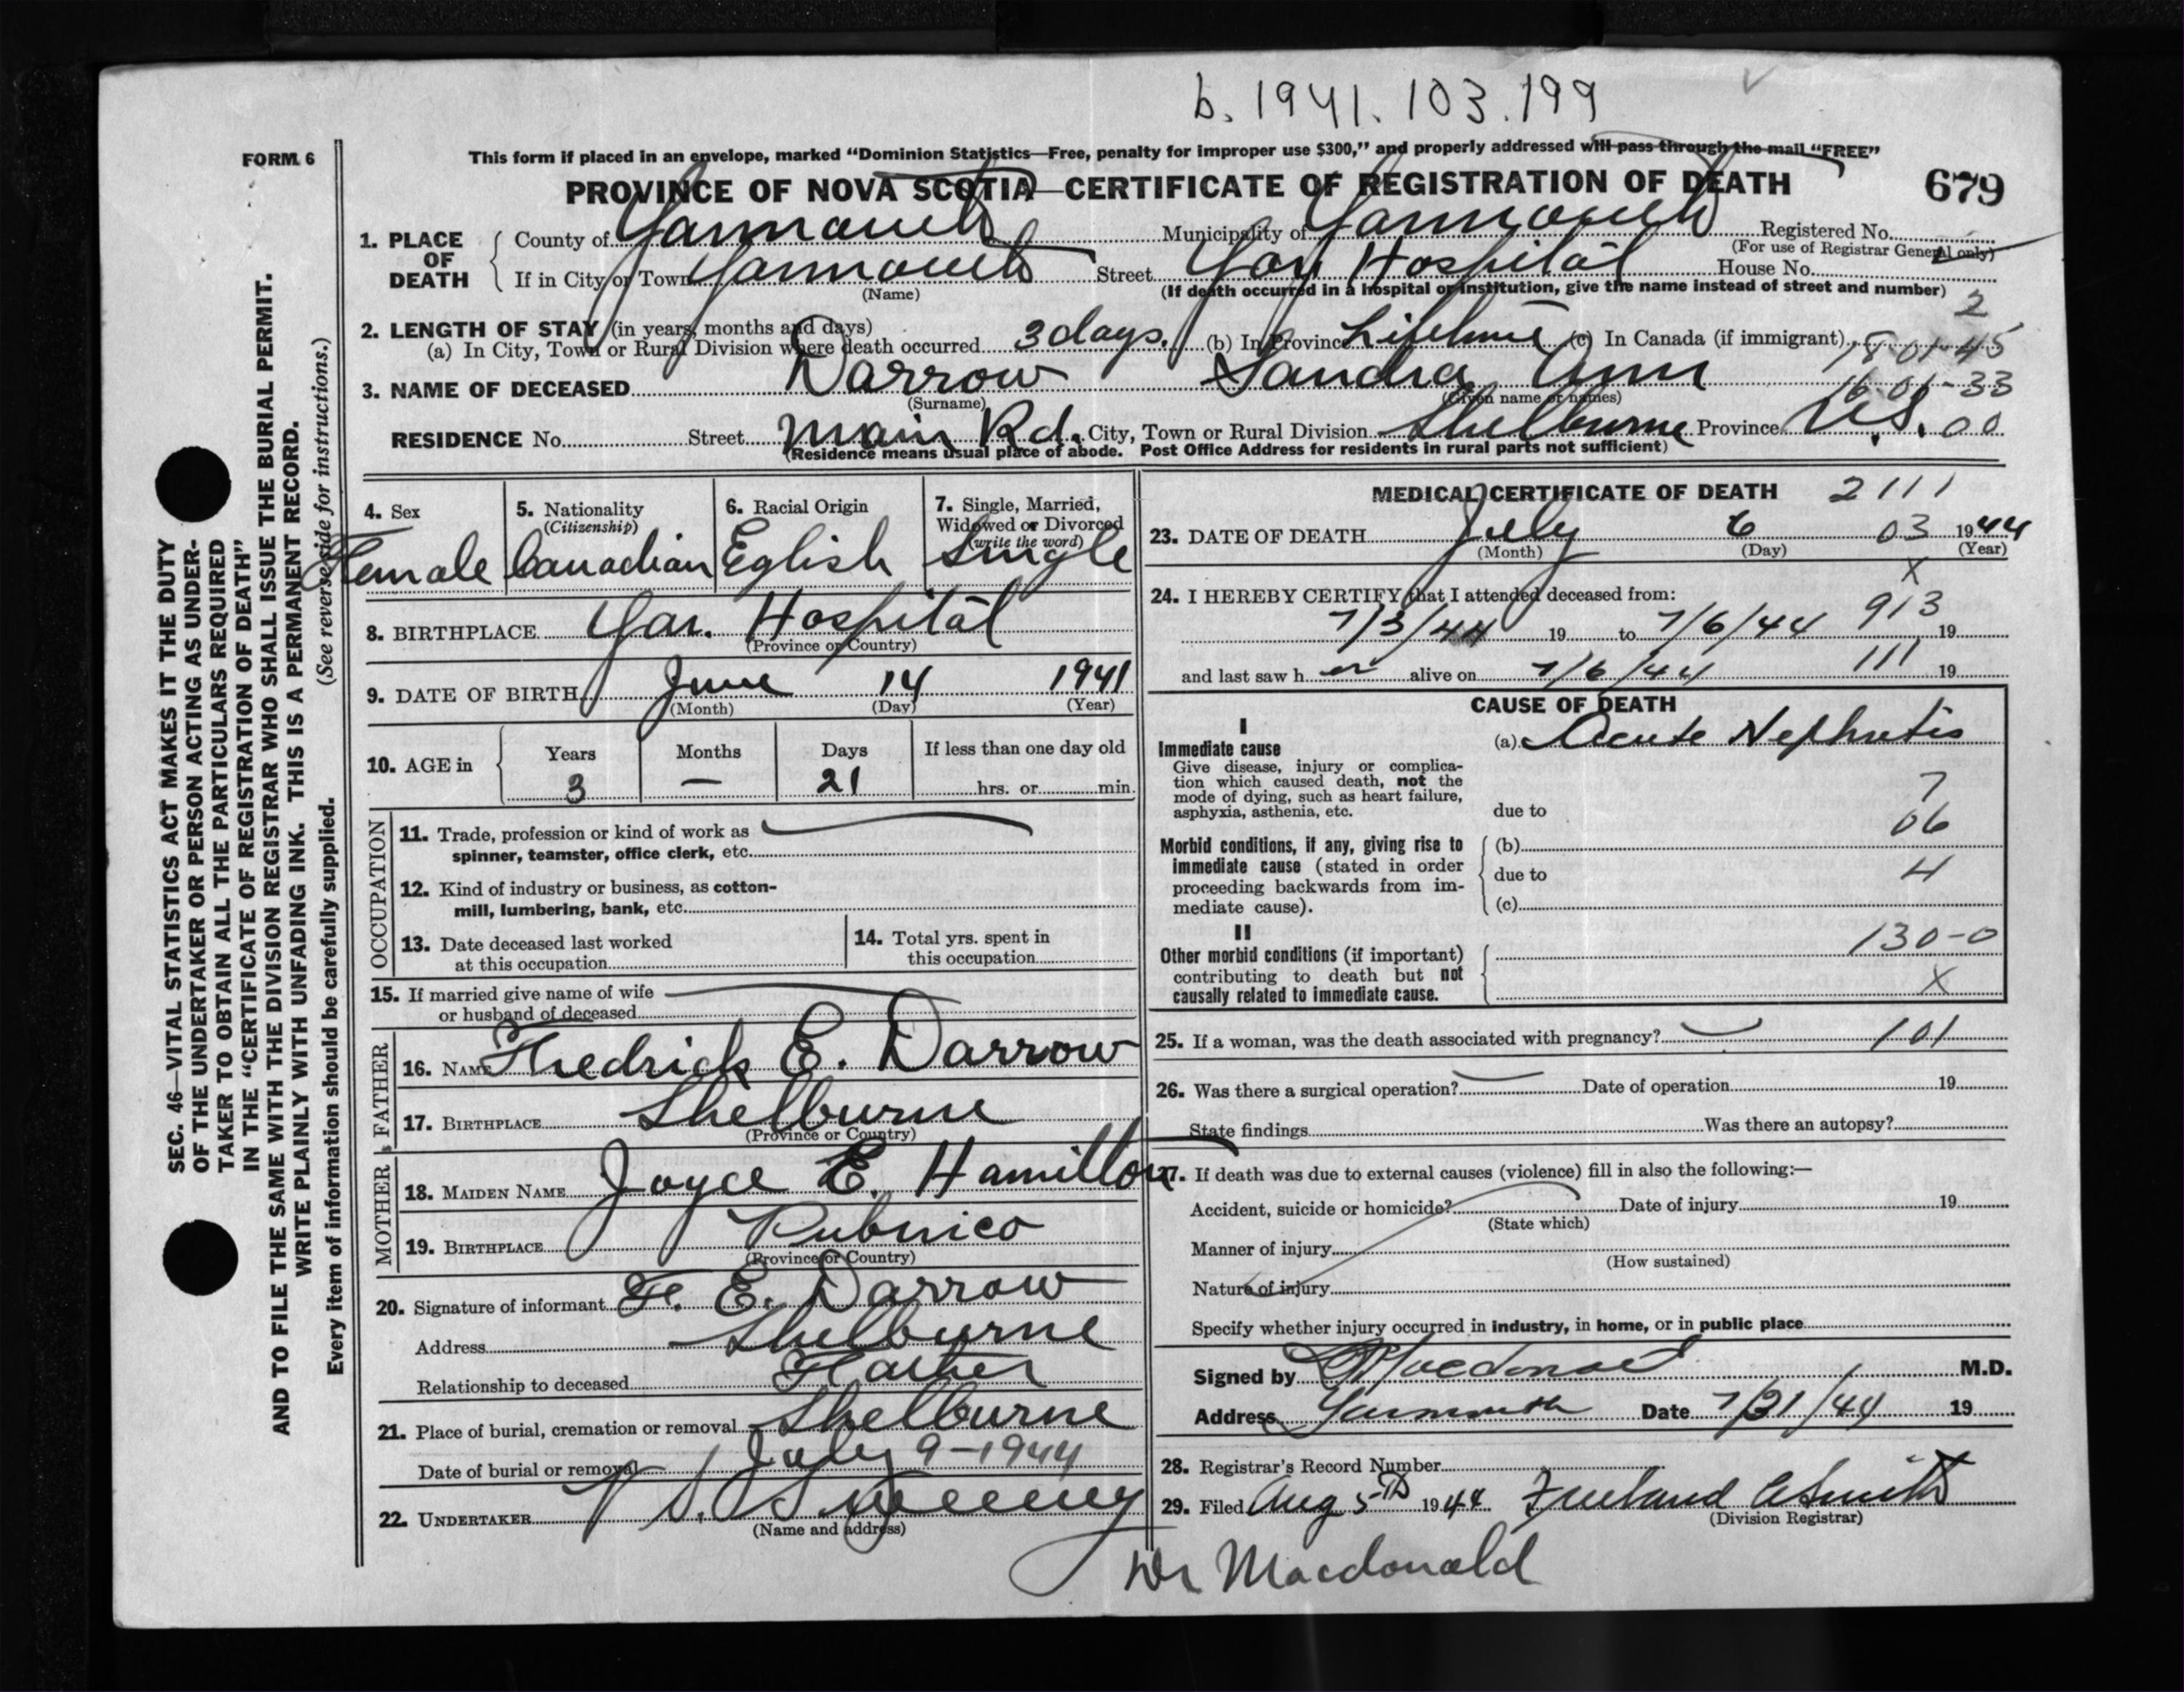 b. 1941. 103. 199
FORM 6
This form if placed in an envelope, marked “Dominion Statistics—Free, penalty for improper use $300,” and properly addressed will pass through the mail “FREE”
PROVINCE OF NOVA SCOTIA—CERTIFICATE OF REGISTRATION OF DEATH
679
1. PLACE OF DEATH
County of Yarmouth Municipality of Yarmouth Registered No.
(For use of Registrar General only)
If in City or Town Yarmouth Street Yar Hospital House No.
(Name) (If death occurred in a hospital or institution, give the name instead of street and number)
2
2. LENGTH OF STAY (in years, months and days)
(a) In City, Town or Rural Division where death occurred 3 days. (b) In Province Lifetime (c) In Canada (if immigrant)
18-01-45
3. NAME OF DECEASED Darrow Sandra Ann
16-01-33
(Surname) (Given name or names)
RESIDENCE No. Street Main Rd. City, Town or Rural Division Shelburne Province N.S. 00
(Residence means usual place of abode. Post Office Address for residents in rural parts not sufficient)
SEC. 46—VITAL STATISTICS ACT MAKES IT THE DUTY
OF THE UNDERTAKER OR PERSON ACTING AS UNDER-
TAKER TO OBTAIN ALL THE PARTICULARS REQUIRED
IN THE “CERTIFICATE OF REGISTRATION OF DEATH”
AND TO FILE THE SAME WITH THE DIVISION REGISTRAR WHO SHALL ISSUE THE BURIAL PERMIT.
WRITE PLAINLY WITH UNFADING INK. THIS IS A PERMANENT RECORD.
Every item of information should be carefully supplied. (See reverse side for instructions.)
4. Sex
Female
5. Nationality
(Citizenship)
Canadian
6. Racial Origin
Eglish
7. Single, Married,
Widowed or Divorced
(write the word)
Single
8. BIRTHPLACE Yar. Hospital
(Province or Country)
9. DATE OF BIRTH June 14 1941
(Month) (Day) (Year)
10. AGE in Years Months Days If less than one day old
3 — 21 hrs. or min.
OCCUPATION
11. Trade, profession or kind of work as
spinner, teamster, office clerk, etc.
12. Kind of industry or business, as cotton-
mill, lumbering, bank, etc.
13. Date deceased last worked
at this occupation
14. Total yrs. spent in
this occupation
15. If married give name of wife
or husband of deceased
FATHER
16. NAME Fredrick E. Darrow
17. BIRTHPLACE Shelburne
(Province or Country)
MOTHER
18. MAIDEN NAME Joyce E. Hamilton
19. BIRTHPLACE Pubnico
(Province or Country)
20. Signature of informant F. E. Darrow
Address Shelburne
Relationship to deceased Father
21. Place of burial, cremation or removal Shelburne
Date of burial or removal July 9-1944
22. UNDERTAKER V S. Sweeney
(Name and address)
MEDICAL CERTIFICATE OF DEATH 2111
23. DATE OF DEATH July 6 03 1944
(Month) (Day) (Year)
X
24. I HEREBY CERTIFY that I attended deceased from:
913
7/3/44 19 to 7/6/44 19
and last saw h er alive on 7/6/44 111 19
CAUSE OF DEATH
I
Immediate cause (a) Acute Nephritis
Give disease, injury or complica-
tion which caused death, not the
mode of dying, such as heart failure,
asphyxia, asthenia, etc. due to
7
06
Morbid conditions, if any, giving rise to (b)
immediate cause (stated in order due to 4
proceeding backwards from im-
mediate cause). (c)
II
Other morbid conditions (if important) 130-0
contributing to death but not
causally related to immediate cause. X
25. If a woman, was the death associated with pregnancy? 101
26. Was there a surgical operation? Date of operation 19
State findings Was there an autopsy?
27. If death was due to external causes (violence) fill in also the following:—
Accident, suicide or homicide? Date of injury 19
(State which)
Manner of injury
(How sustained)
Nature of injury
Specify whether injury occurred in industry, in home, or in public place
Signed by Macdonald M.D.
Address Yarmouth Date 7/31/44 19
28. Registrar's Record Number
29. Filed Aug 5th 1944 Freeland A Smith
(Division Registrar)
Dr Macdonald